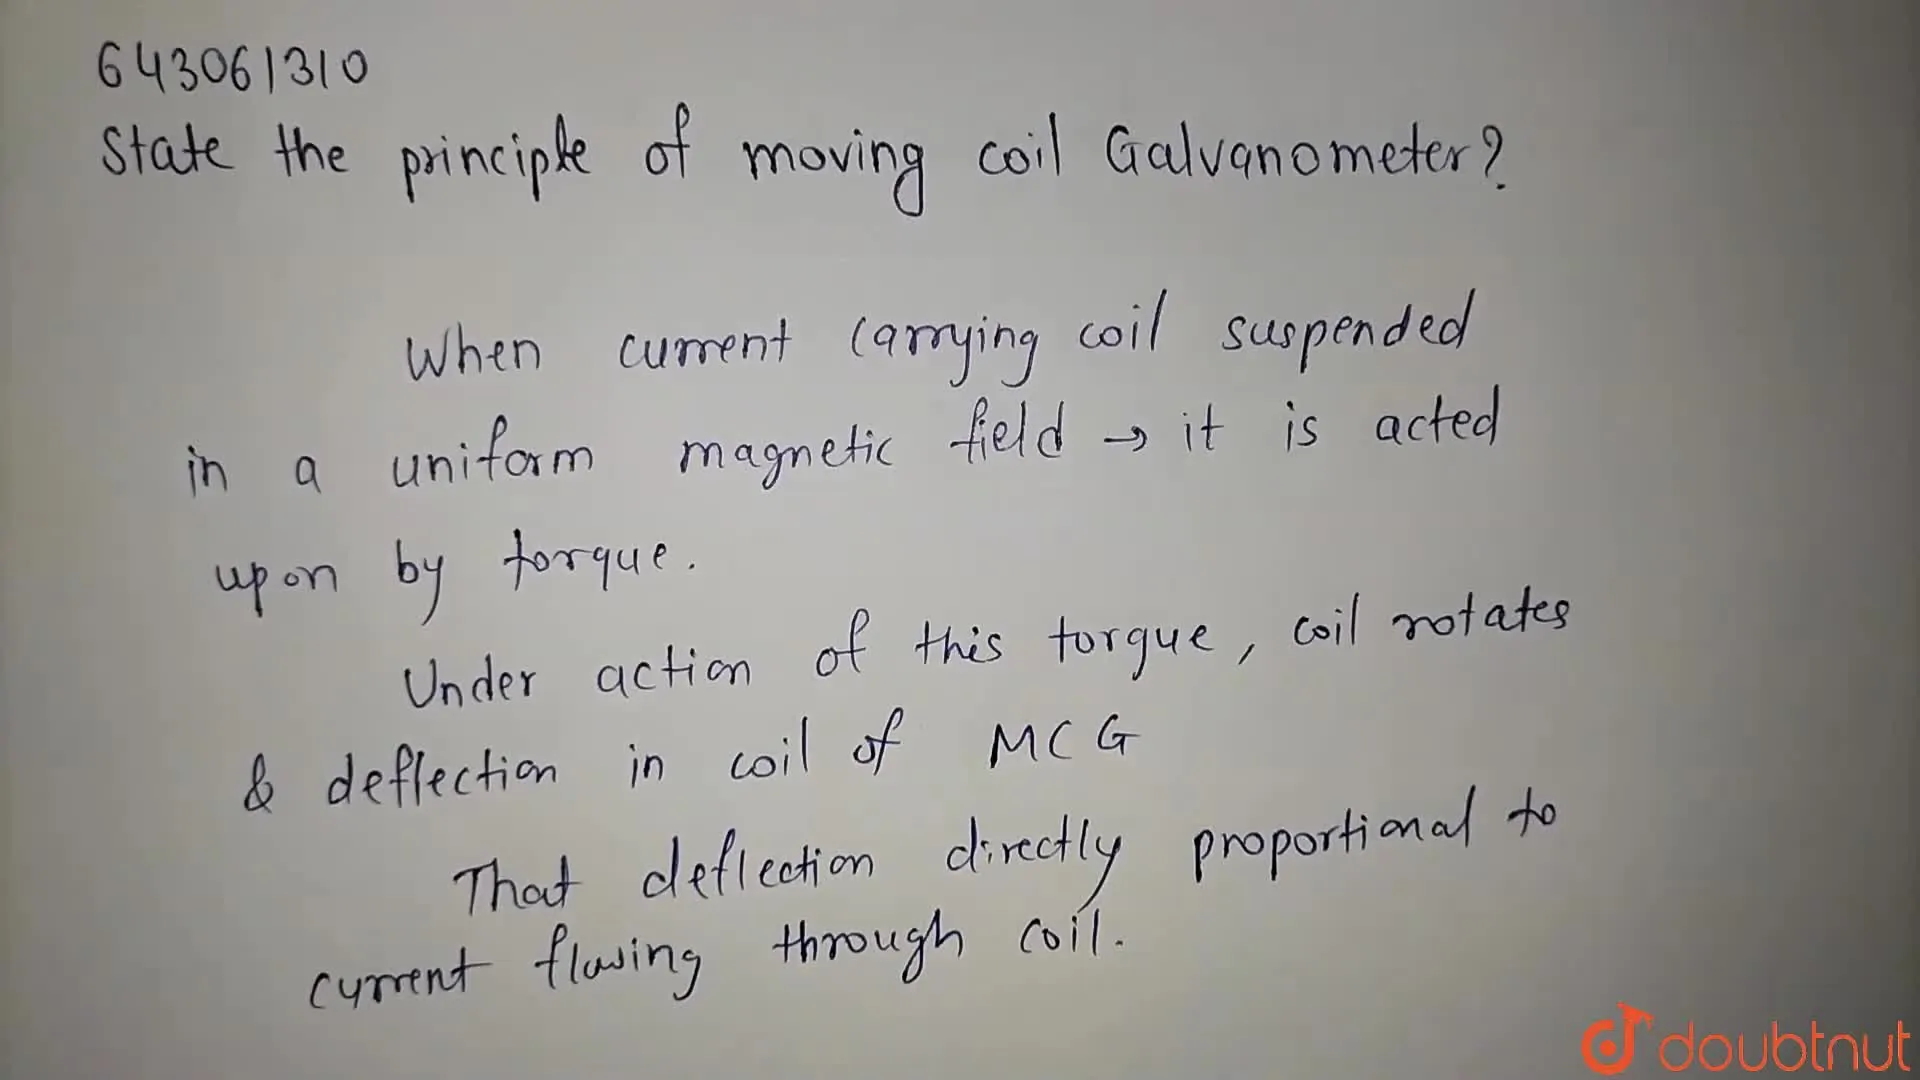 643061310
State the principle of moving coil Galvanometer?
When current carrying coil suspended
in a uniform magnetic field → it is acted
upon by torque.
Under action of this torque, coil rotates
& deflection in coil of MCG
That deflection directly proportional to
current flowing through coil.
doubtnut